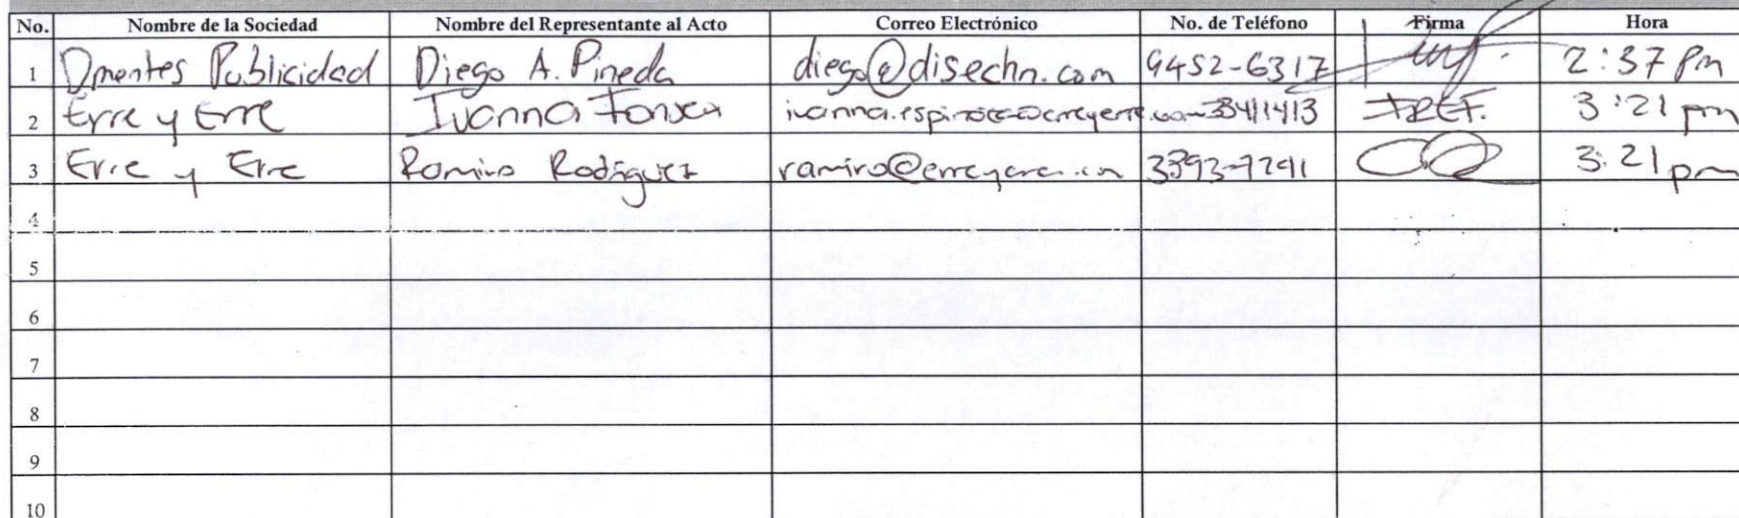 No. Nombre de la Sociedad Nombre del Representante al Acto Correo Electrónico No. de Teléfono Firma Hora
1 Dmentes Publicidad Diego A. Pineda diego@disechn.com 9452-6317 2:37 Pm
2 Erre y Erre Ivanna Fonseca 33411413 I.R.E.F. 3:21 pm
3 Erre y Erre Ramiro Rodríguez 3393-7291 3:21 pm
4
5
6
7
8
9
10